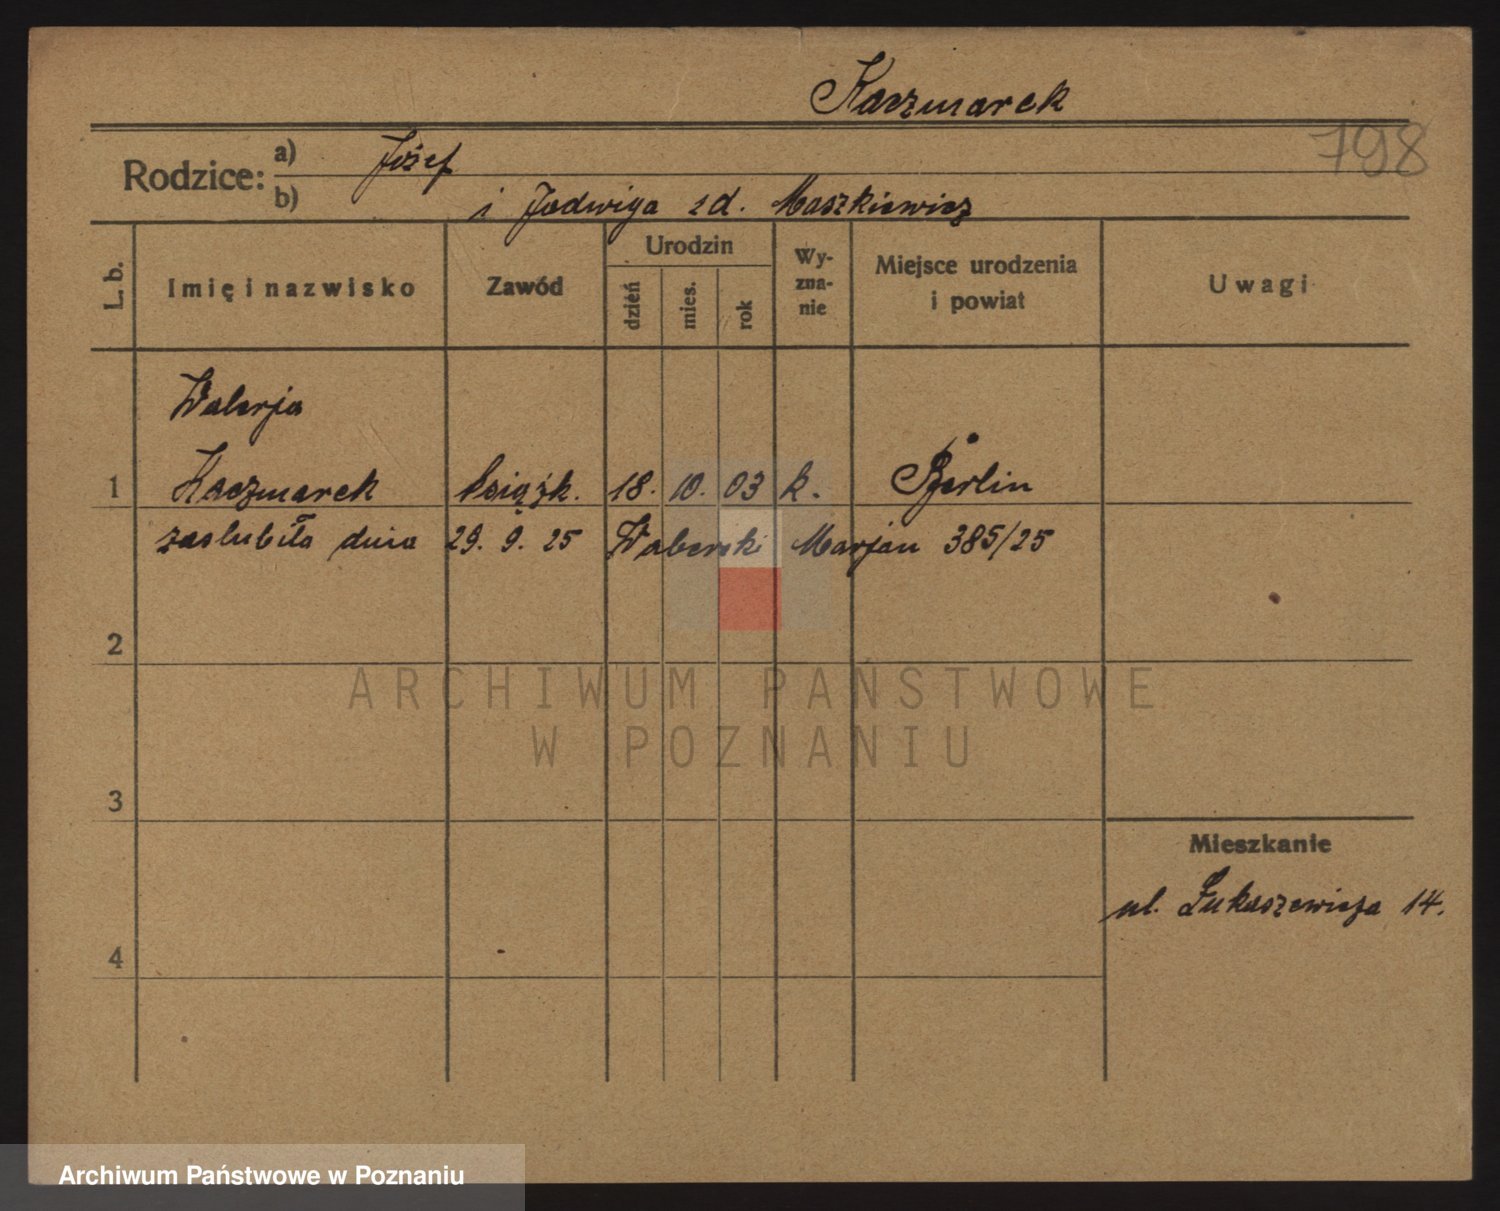 Kaczmarek
798
Rodzice: a) Józef
b) i Jadwiga zd. Maszkiewicz
L. b.
Imię i nazwisko
Zawód
Urodzin
dzień
mies.
rok
Wy-
zna-
nie
Miejsce urodzenia
i powiat
Uwagi
Walerja
1 Kaczmarek książk. 18. 10. 03 k. Berlin
zaslubiła dnia 29. 9. 25 Waberski Marjan 385/25
2
ARCHIWUM PAŃSTWOWE
W POZNANIU
3
Mieszkanie
ul. Łukaszewicza 14.
4
Archiwum Państwowe w Poznaniu